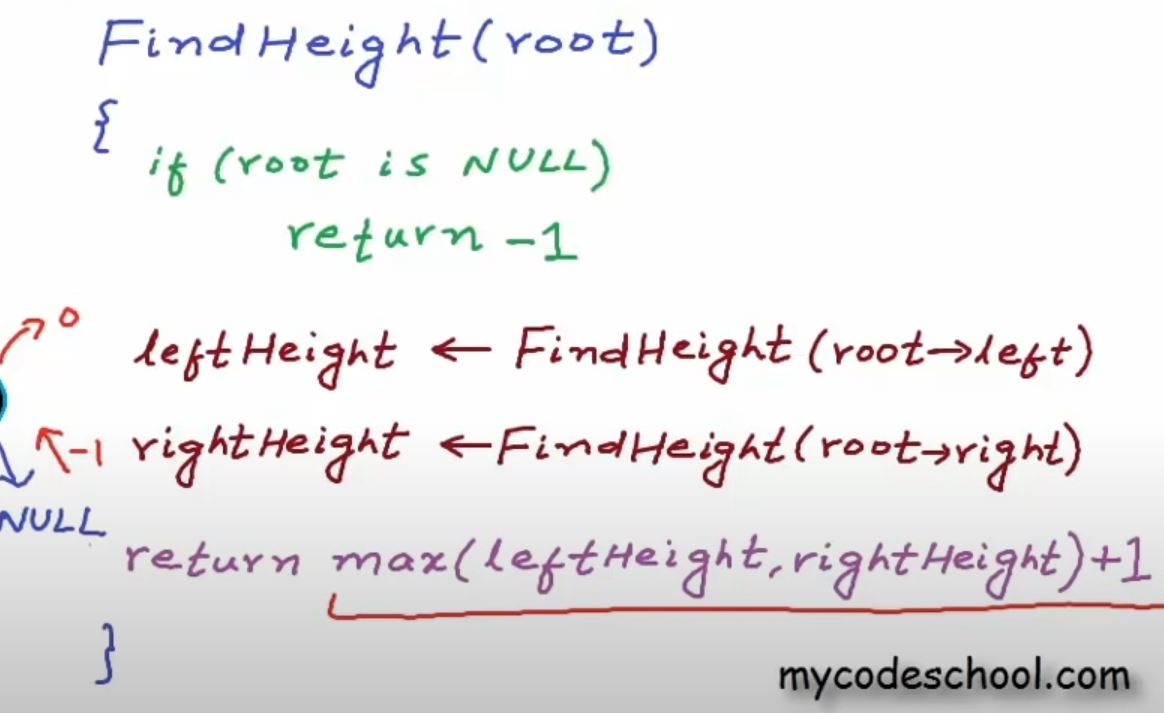 FindHeight(root)
{
if (root is NULL)
return -1
0
leftHeight ← FindHeight(root→left)
-1
rightHeight ← FindHeight(root→right)
NULL
return max(leftHeight, rightHeight)+1
}
mycodeschool.com